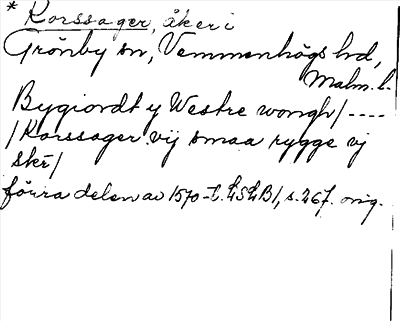 * Korssager, åker i
Grönby sn, Vemmenhögs hd,
Malm. l.
Bygiordt y Westre wongh/----
/Korssager vij smaa rygge vj
skr/
förra delen av 1570-t. LSLB1, s. 267. orig.